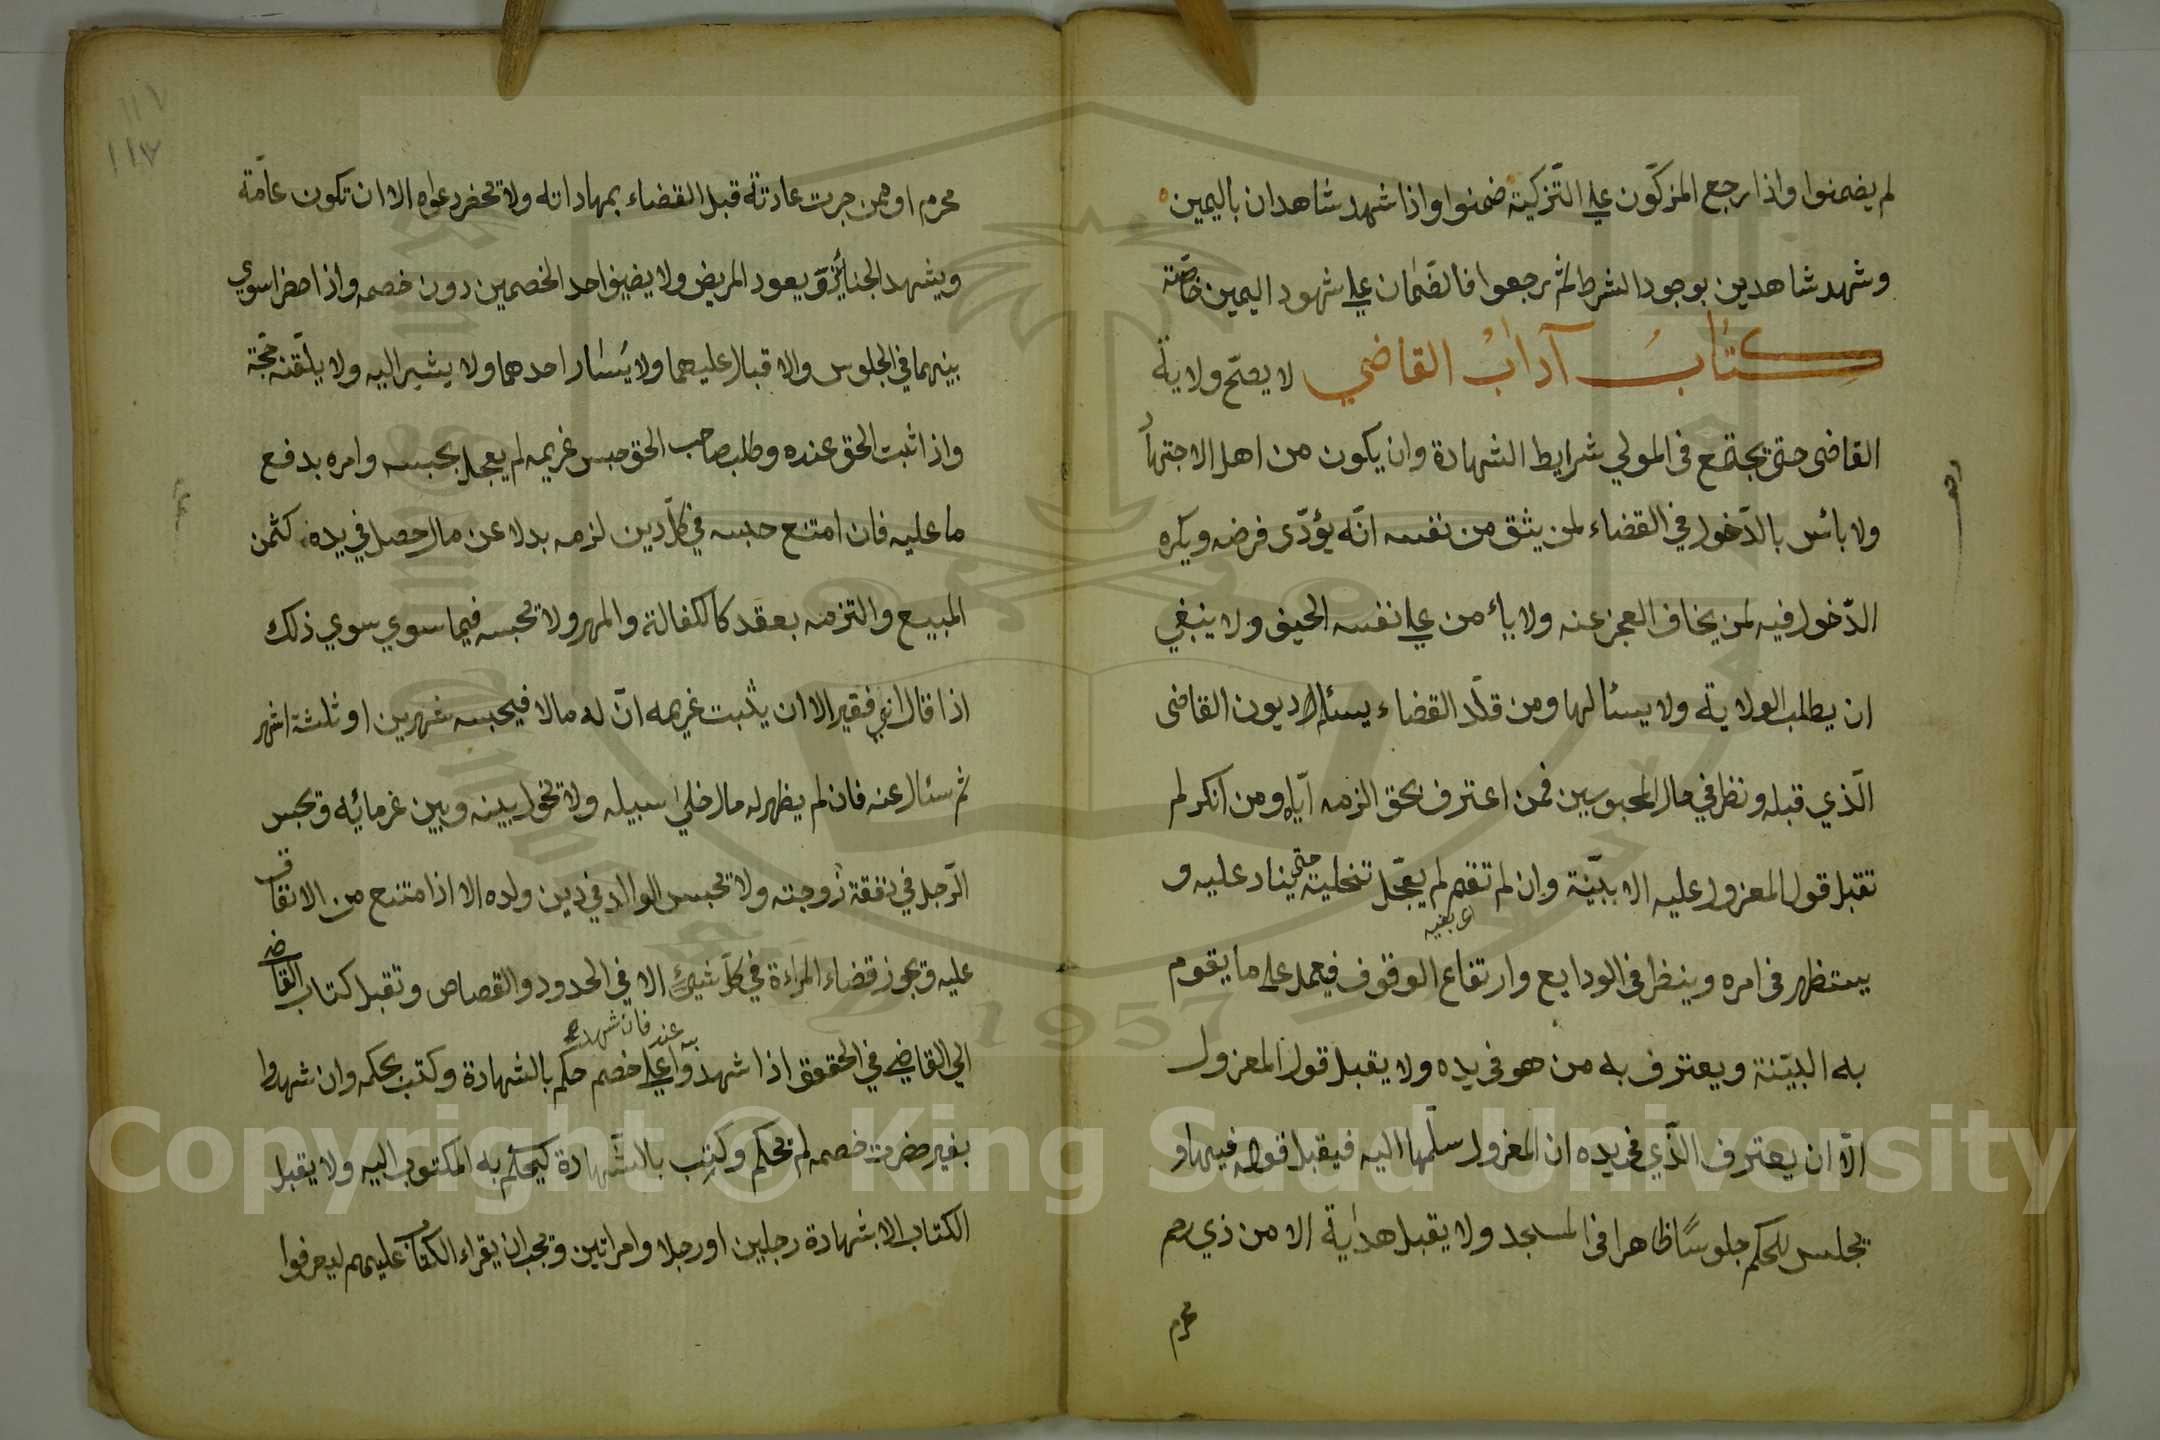 لم يضمنوا واذا رجع المزكّون علي التّزكية ضمنوا واذا شهد شاهدان باليمين
وشهد شاهدين بوجود الشرط ثم رجعوا فالضّمان علي شهود اليمين خاصّة
كتاب آداب القاضي لا يصحّ ولاية
القاضى حتى يجتمع فى المولي شرايط الشهادة وان يكون من اهل الاجتهاد
ولا بائس بالدّخول في القضاء لمن يثق من نفسه انّه يؤدّى فرضه ويكره
الدّخول فيه لمن يخاف العجز عنه ولا يأمن علي نفسه الحيف ولا ينبغي
ان يطلب الولاية ولا يسئالها ومن قلّد القضاء يسئله ديون القاضى
الّذي قبله ونظر في حال المحبوسين فمن اعترف بحق الزمه ايّاه ومن انكر لم
تقبل قول المعزول عليه الا ببيّنة وان لم تقم لم يعجّل تخلية حتى يناد عليه و
يستظهر فى امره وينظر فى الودايع وارتفاع الوقوف فيعمل علي ما يقوم
به البيّنة ويعترف به من هو فى يده ولا يقبل قول المعزول
الّا ان يعترف الّذي في يده ان المعزول سلّمها اليه فيقبل قوله فيها و
يجلس للحكم جلوسًا ظاهرا فى المسجد ولا يقبل هداية الا من ذي رحم
محرم
١١١
١١٧
محرم او ممن جرت عادته قبل القضاء بمهاداته ولا تحضر دعواه الا ان تكون عامّة
ويشهد الجنائز ويعود المريض ولا يضيف احد الخصمين دون خصمه واذا حضرا سوي
بينهما في الجلوس والاقبال عليهما ولا يسارّ احدهما ولا يشير اليه ولا يلقّنه حجّة
واذا ثبت الحق عنده وطلب صاحب الحق حبس غريمه لم يعجل بحبسه وامره بدفع
ما عليه فان امتنع حبسه في كلّ دين لزمه بدلا عن مال حصل في يده كثمن
المبيع والتزمه بعقد كالكفالة والمهر ولا تحبسه فيما سوي سوي ذلك
اذا قال اني فقير الا ان يثبت غريمه انّ له مالا فيحبسه شهرين او ثلثة اشهر
ثم سئال عنه فان لم يظهر له مال خلي سبيله ولا تحول بينه وبين غرمائه وتحبس
الرّجل في نفقة زوجته ولا تحبس الوالد في دين ولده الا اذا امتنع من الانفاق
عليه وتجوز قضاء المراءة في كلّ شيئ الا في الحدود والقصاص وتقبل كتاب القاضي
الي القاضي في الحقوق اذا شهد به عنده فان شهدوا علي خصم حكم بالشهادة وكتب بحكمه وان شهدوا
بغير حضرت خصمه لم تحكم وكتب بالشّهادة ليحكم به المكتوب اليه ولا يقبل
الكتاب الا بشهادة رجلين او رجلا وامراتين وتجب ان يقراء الكتاب عليهم ليعرفوا
Copyright © King Saud University
1957